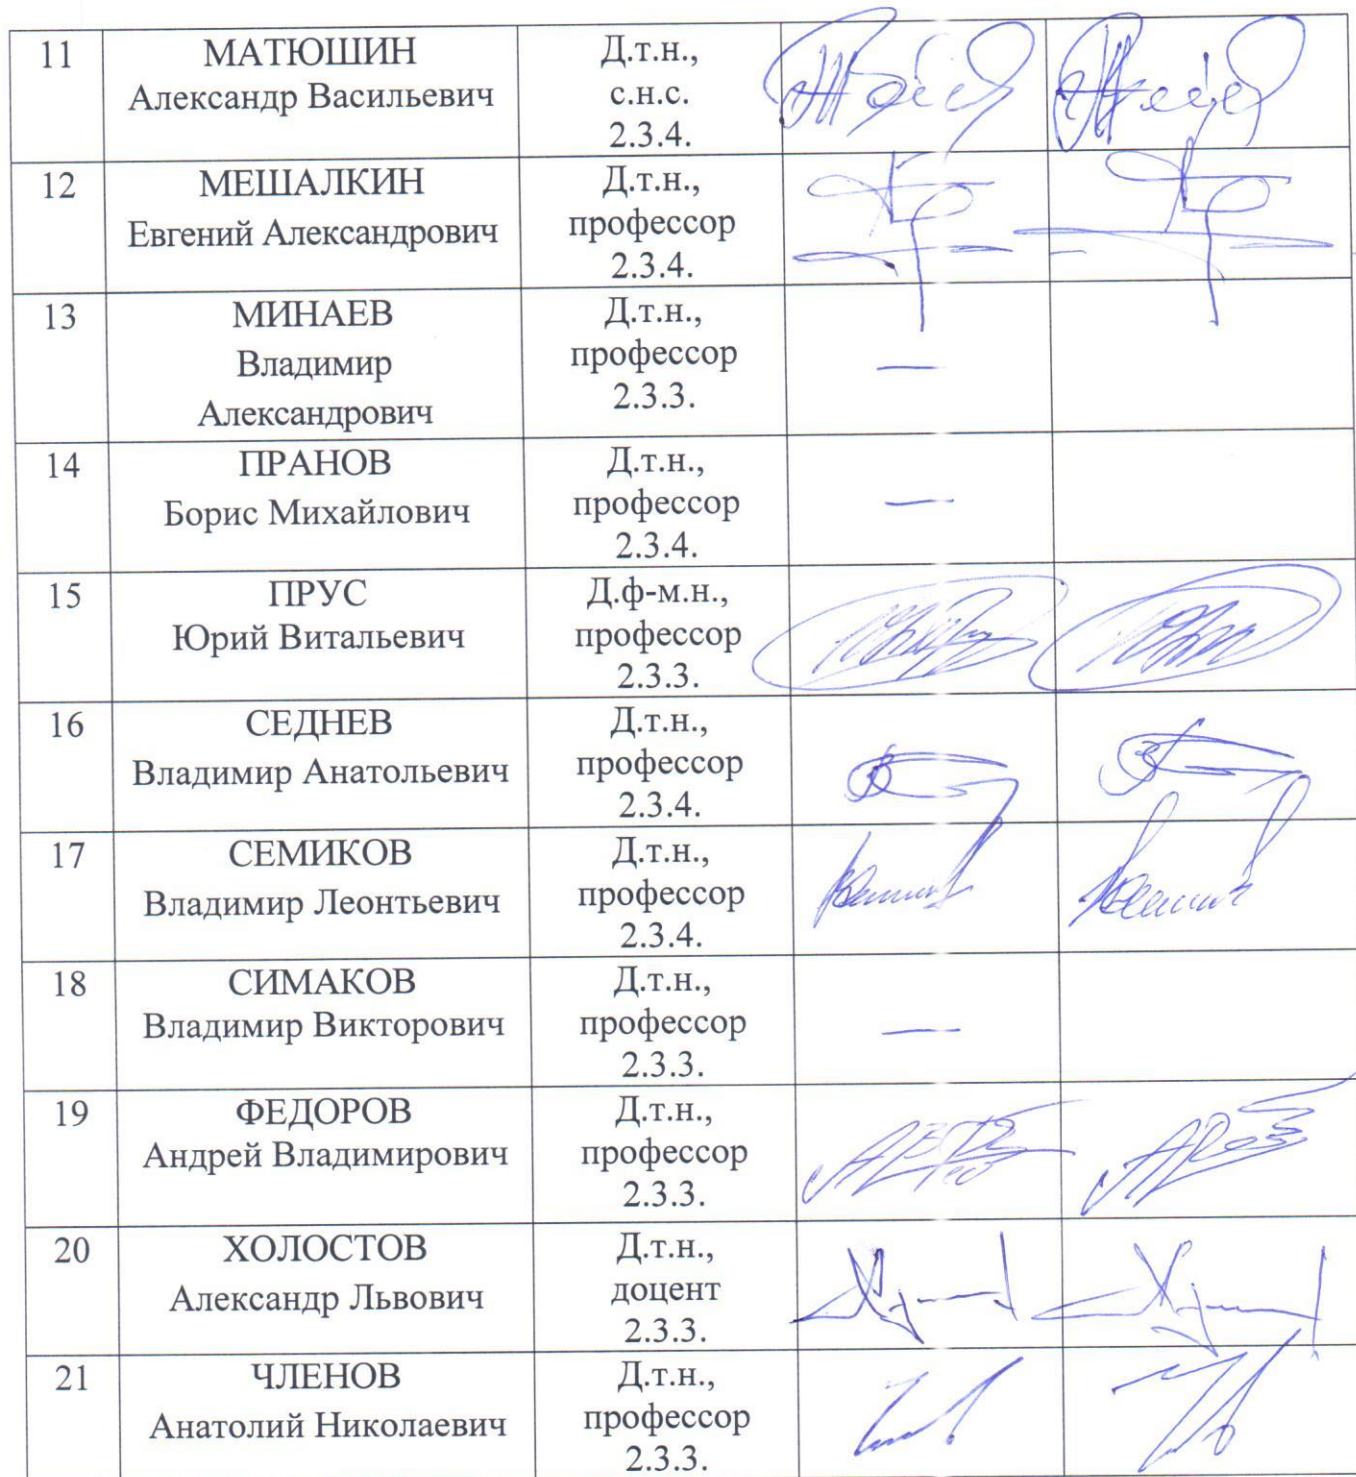 11
МАТЮШИН
Александр Васильевич
Д.т.н.,
с.н.с.
2.3.4.
12
МЕШАЛКИН
Евгений Александрович
Д.т.н.,
профессор
2.3.4.
13
МИНАЕВ
Владимир
Александрович
Д.т.н.,
профессор
2.3.3.
—
14
ПРАНОВ
Борис Михайлович
Д.т.н.,
профессор
2.3.4.
—
15
ПРУС
Юрий Витальевич
Д.ф-м.н.,
профессор
2.3.3.
16
СЕДНЕВ
Владимир Анатольевич
Д.т.н.,
профессор
2.3.4.
17
СЕМИКОВ
Владимир Леонтьевич
Д.т.н.,
профессор
2.3.4.
18
СИМАКОВ
Владимир Викторович
Д.т.н.,
профессор
2.3.3.
—
19
ФЕДОРОВ
Андрей Владимирович
Д.т.н.,
профессор
2.3.3.
20
ХОЛОСТОВ
Александр Львович
Д.т.н.,
доцент
2.3.3.
21
ЧЛЕНОВ
Анатолий Николаевич
Д.т.н.,
профессор
2.3.3.